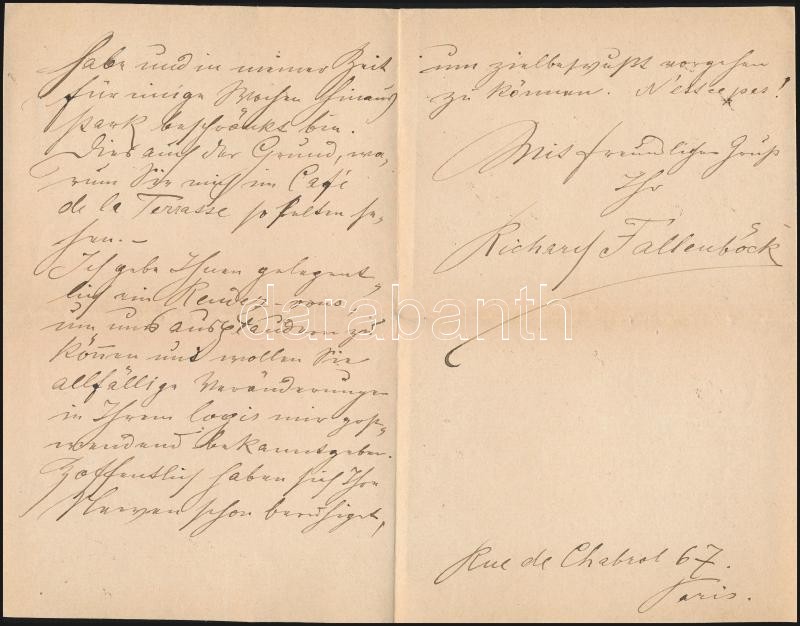 habe und in meiner Zeit
für einige Wochen hinaus
stark beschränkt bin.
Dies auch der Grund, wa-
rum Sie mich im Café
de la Terrasse so selten se-
hen. –
Ich gebe Ihnen gelegent-
lich ein Rendez-vous,
um uns ausplaudern zu
können und wollen Sie
allfällige Veränderungen
in Ihrem logis mir post-
wendend bekanntgeben.
Hoffentlich haben sich Ihre
Nerven schon beruhiget,
um zielbewußt vorgehen
zu können. N'est ce pas!
Mit freundlichem Gruß
Ihr
Richard Fallenböck
Rue de Chabrol 67.
Paris.
darabanth